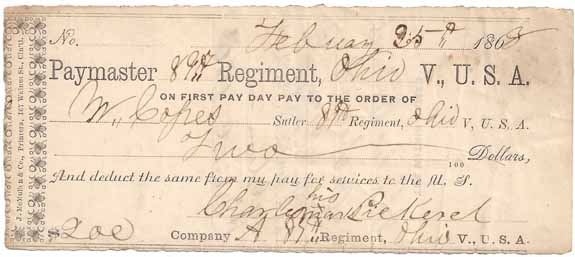 No. Febuary 25th 1863
Paymaster 89th Regiment, Ohio V., U. S. A.
ON FIRST PAY DAY PAY TO THE ORDER OF
W. Copes Sutler 89th Regiment, Ohio V, U. S. A.
Two 100 Dollars,
And deduct the same from my pay for services to the U. S.
his
Charles mark Pickerel
$2.00 Company A 89th Regiment, Ohio V., U. S. A.
J. McMullen & Co., Printers, 167 Walnut St., Cin'ti.